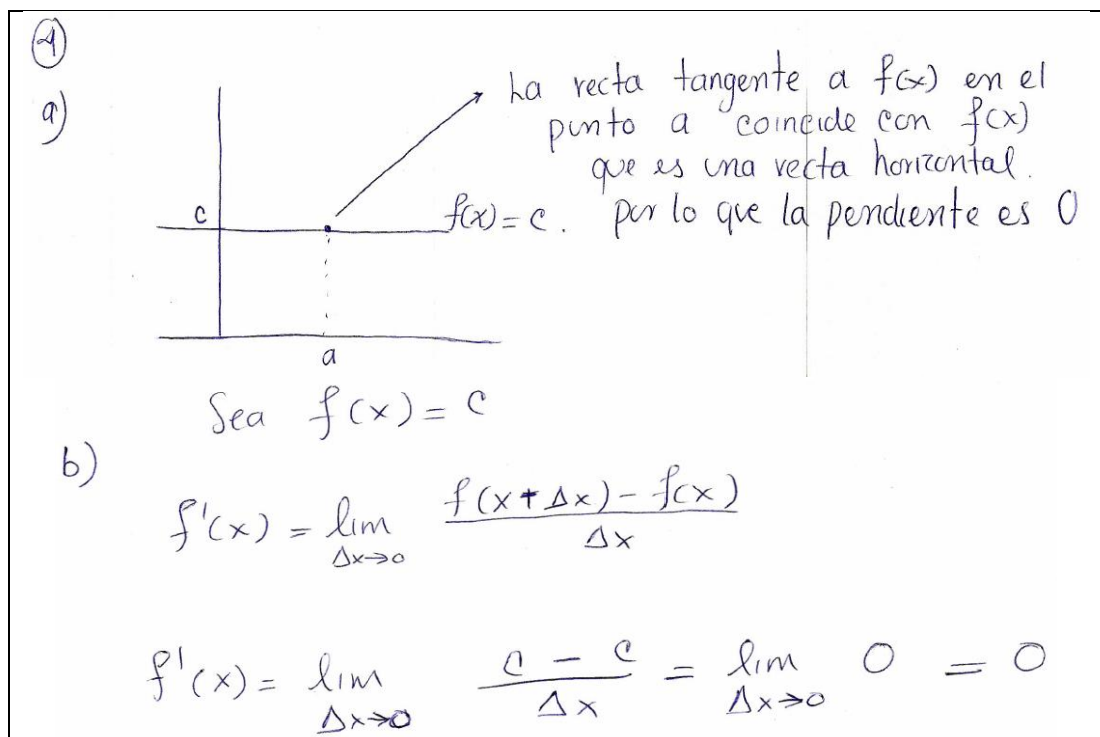 4
a)
La recta tangente a f(x) en el
punto a coincide con f(x)
que es una recta horizontal.
c
f(x) = c. por lo que la pendiente es 0
a
Sea f(x) = c
b)
f'(x) = lim Δx→0 (f(x+Δx) - f(x)) / Δx
f'(x) = lim Δx→0 (c - c) / Δx = lim Δx→0 0 = 0